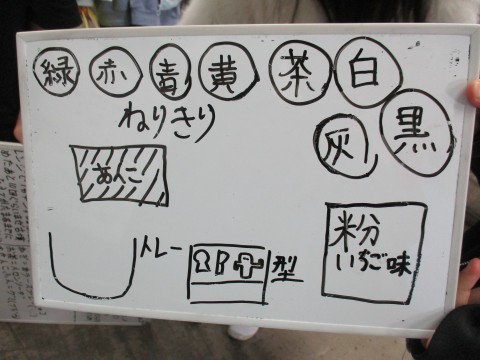 緑 赤 青 黄 茶 白
黒
灰
ねりきり
あんこ
トレー
型
粉
いちご味